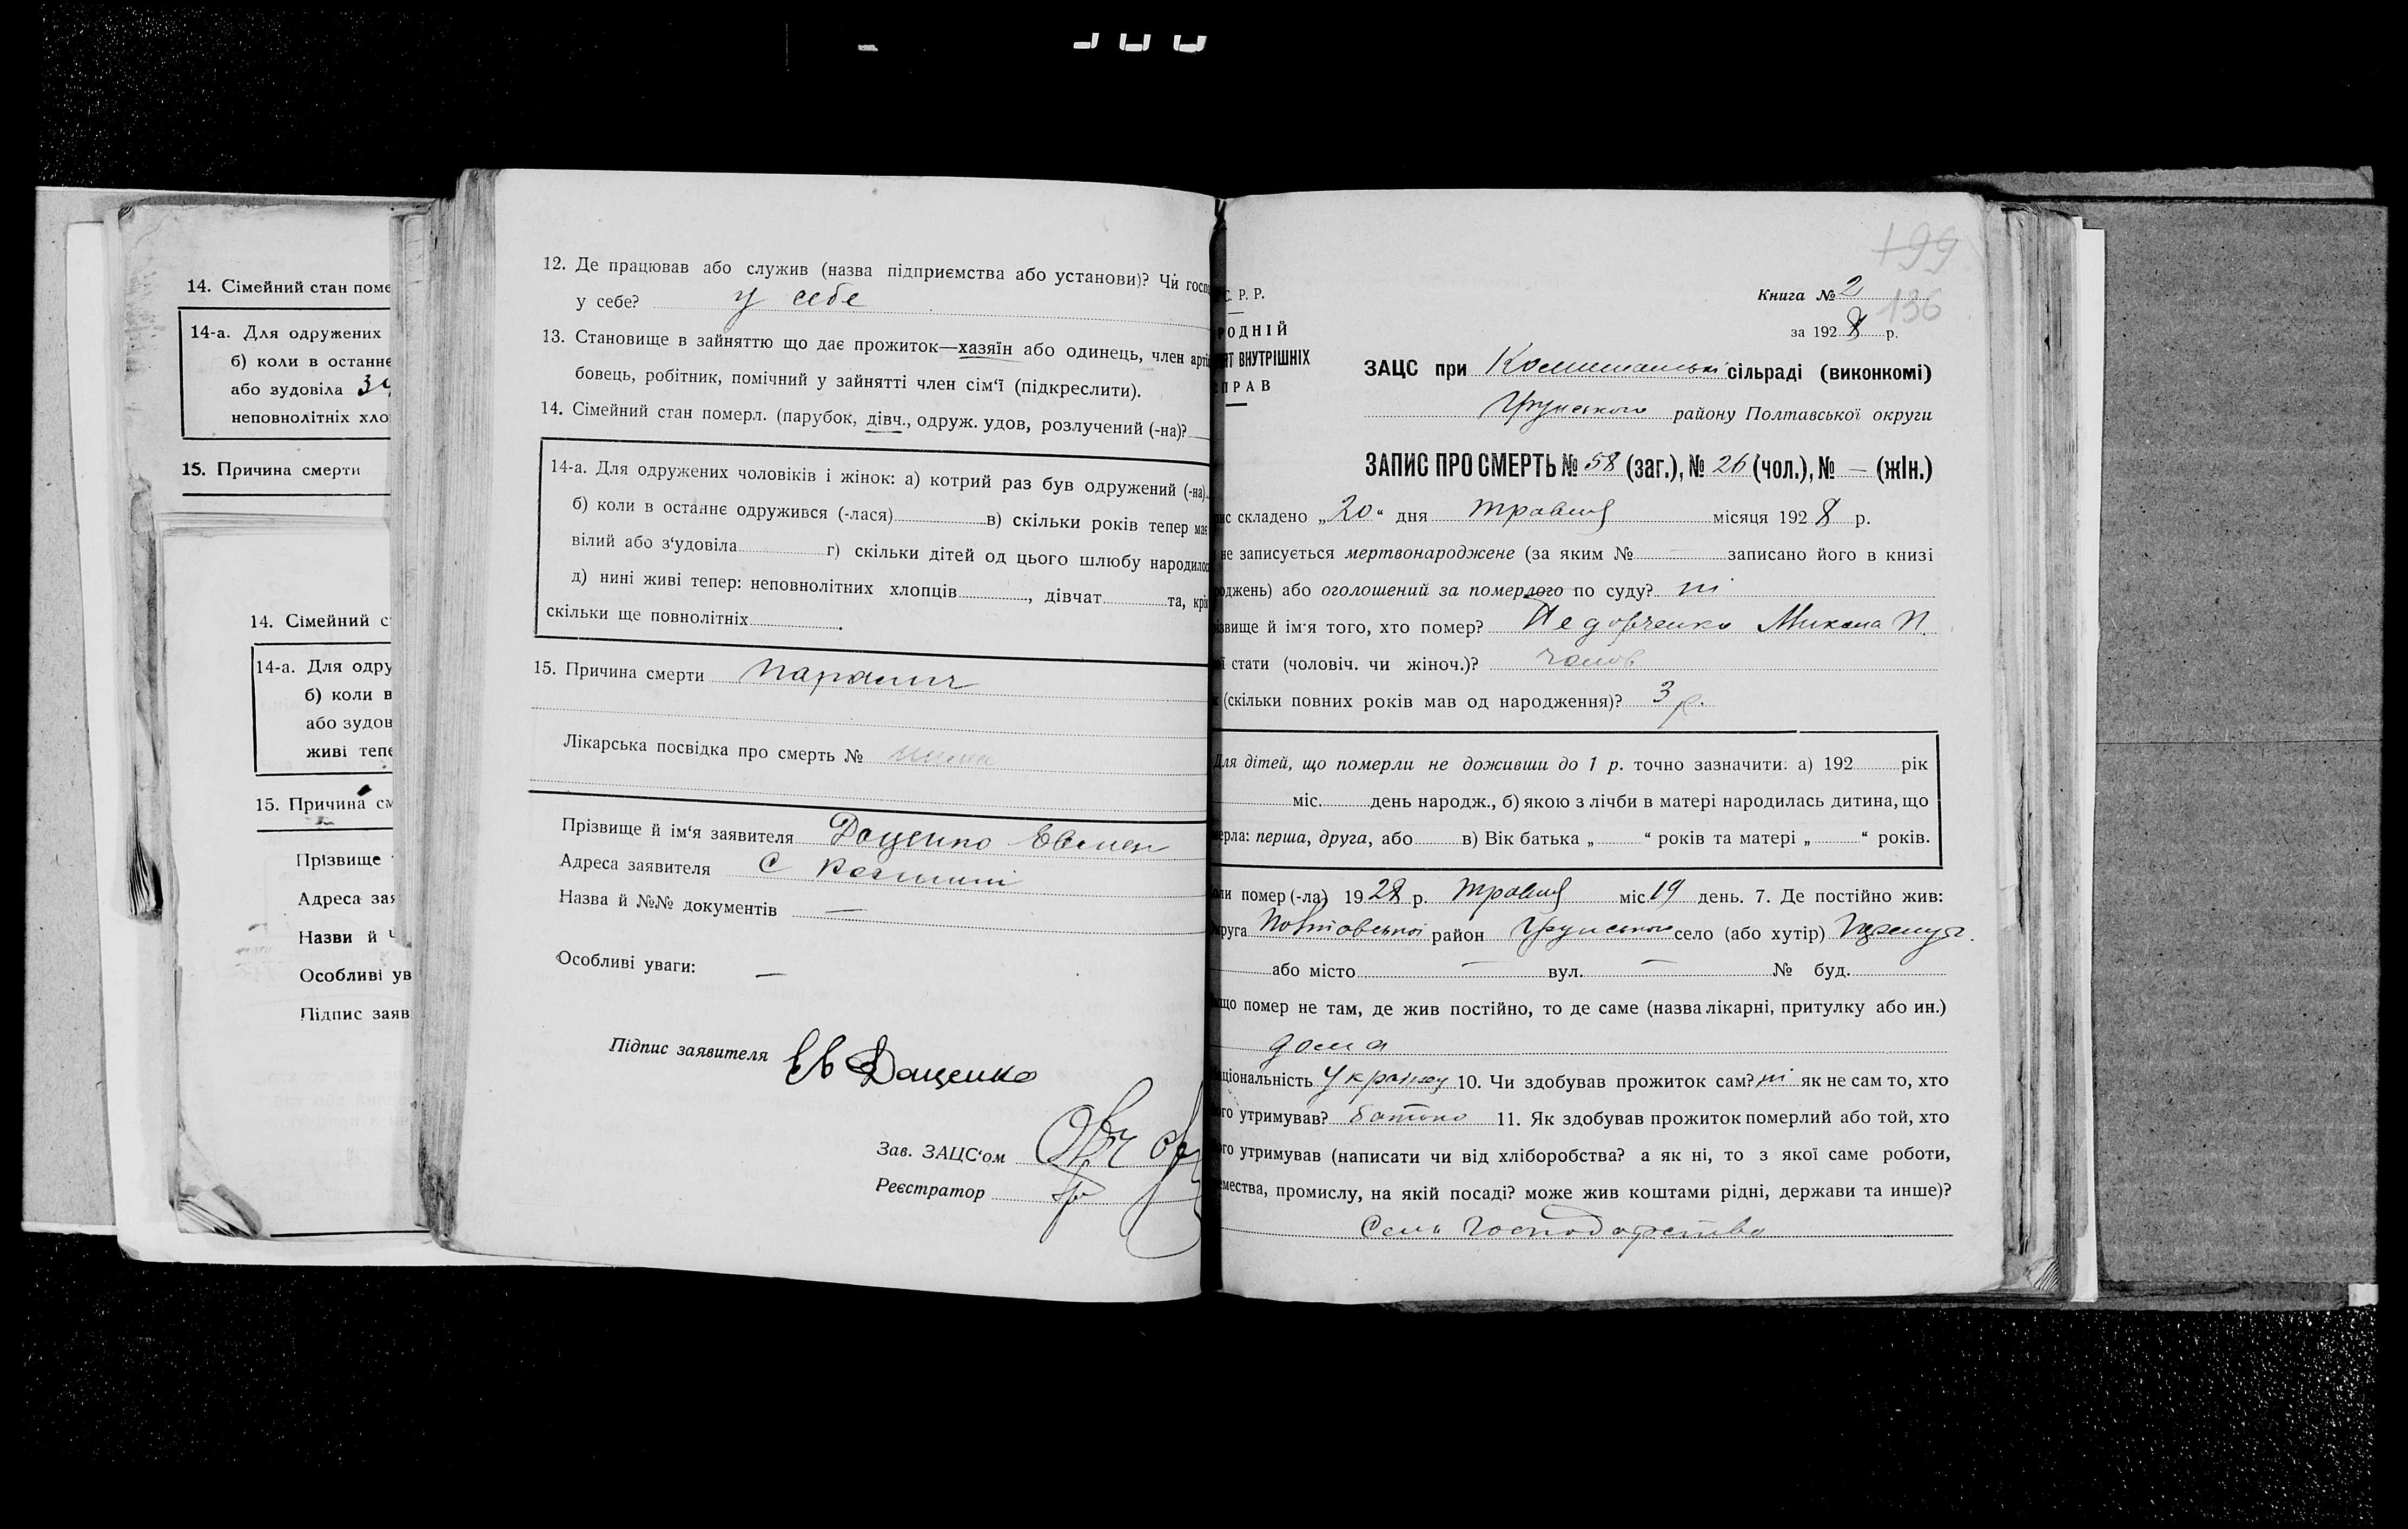 14. Сімейний стан поме
14-а. Для одружених
б) коли в останнє
або зудовіла
неповнолітніх хло
15. Причина смерти
14. Сімейний с
14-а. Для одру
б) коли в
або зудов
живі тепе
15. Причина см
Прізвище
Адреса зая
Назви й
Особливі ув
Підпис заяв
12. Де працював або служив (назва підприємства або установи)? Чи госп
у себе? у себе
13. Становище в зайняттю що дає прожиток—хазяїн або одинець, член арті
бовець, робітник, помічний у зайнятті член сім'ї (підкреслити).
14. Сімейний стан померл. (парубок, дівч., одруж. удов, розлучений (-на)?
14-а. Для одружених чоловіків і жінок: а) котрий раз був одружений (-на)
б) коли в останнє одружився (-лася) в) скільки років тепер має
вілий або з'удовіла г) скільки дітей од цього шлюбу народилос
д) нині живі тепер: неповнолітних хлопців, дівчат та, крім
скільки ще повнолітніх.
15. Причина смерти параліч
Лікарська посвідка про смерть № нема
Прізвище й ім'я заявителя Доценко Евмен
Адреса заявителя С
Назва й №№ документів —
Особливі уваги: —
Підпис заявителя Ев Доценко
Зав. ЗАЦС'ом
Реєстратор
199
С. Р. Р.
Книга № 2
136
за 1928 р.
РОДНІЙ
ВНУТРІШНІХ
ПРАВ
ЗАЦС при сільраді (виконкомі)
Грунського району Полтавської округи
ЗАПИС ПРО СМЕРТЬ № 58 (заг.), № 26 (чол.), № — (жін.)
ис складено „20“ дня травня місяця 1928 р.
не записується мертвонароджене (за яким № — записано його в книзі
роджень) або оголошений за померлого по суду? ні
ізвище й ім'я того, хто помер? Микола П.
ї стати (чоловіч. чи жіноч.)? чолов
к (скільки повних років мав од народження)? 3 р.
Для дітей, що померли не доживши до 1 р. точно зазначити: а) 192 рік
міс. день народж., б) якою з лічби в матері народилась дитина, що
мерла: перша, друга, або в) Вік батька „ “ років та матері „ “ років.
оли помер (-ла) 1928 р. травня міс. 19 день. 7. Де постійно жив:
круга Полтавської район Грунського село (або хутір)
або місто — вул. — № буд.
що помер не там, де жив постійно, то де саме (назва лікарні, притулку або ин.)
дома
ціональність Україн 10. Чи здобував прожиток сам? ні як не сам то, хто
го утримував? батько 11. Як здобував прожиток померлий або той, хто
го утримував (написати чи від хліборобства? а як ні, то з якої саме роботи,
емества, промислу, на якій посаді? може жив коштами рідні, держави та инше)?
Сель господарство